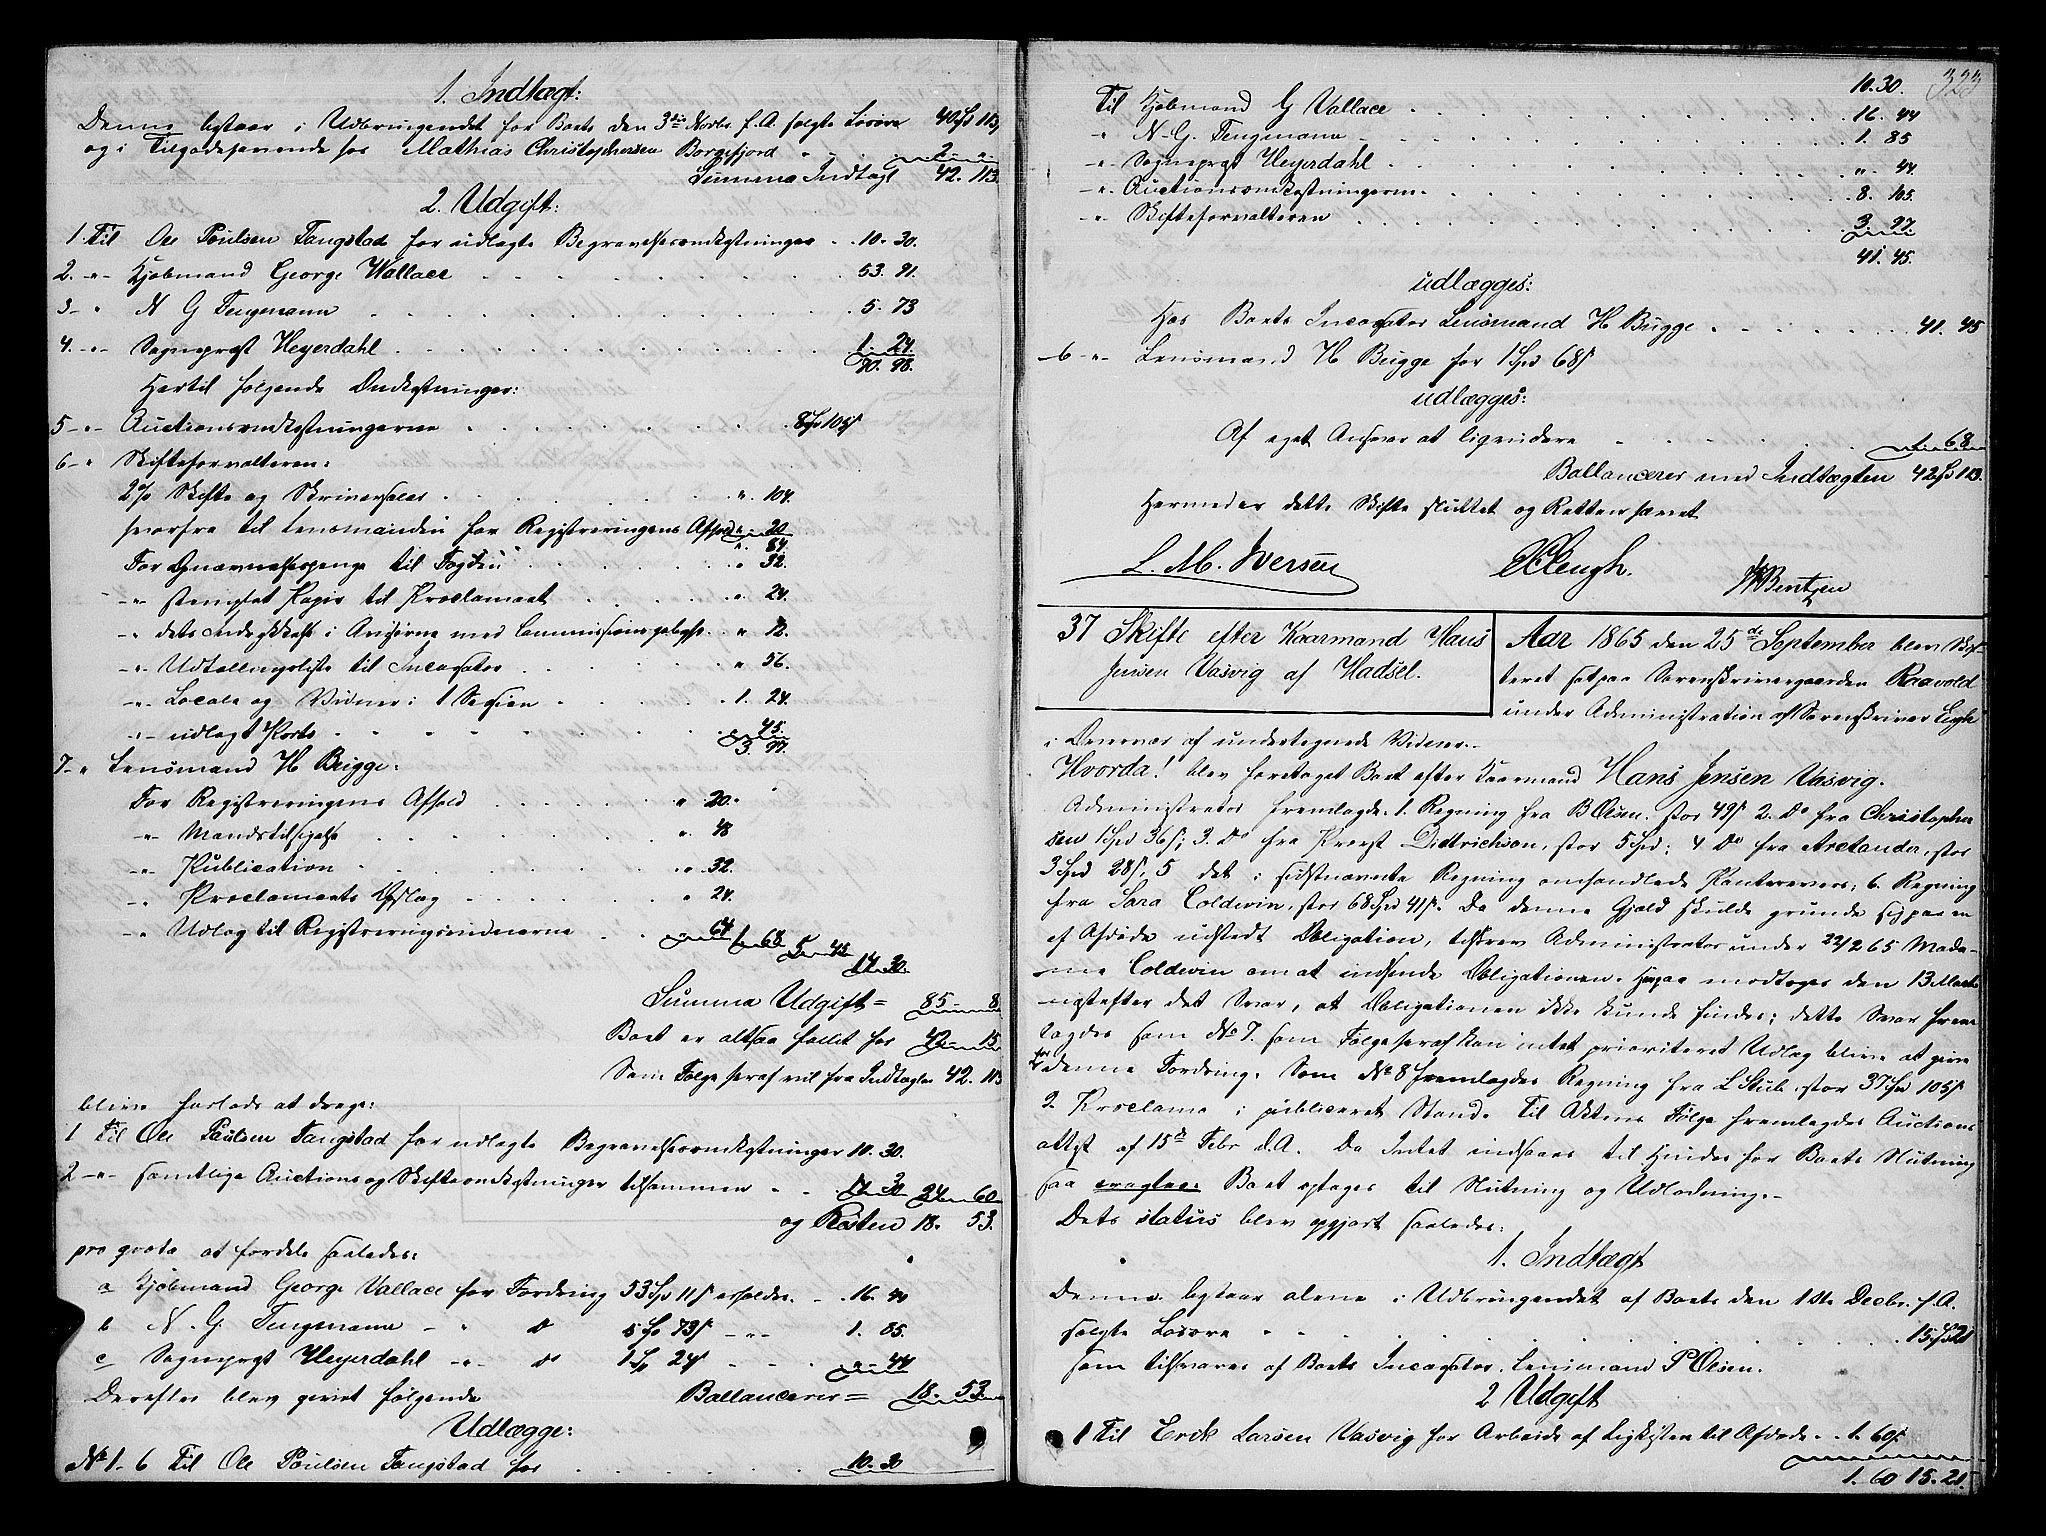 1. Indtægt:
Denne bestaar i Udbringendet for Boets den 3die Novbr. f. A. solgte Løsøre 40 Sp 113,
og i Tilgodehavende hos Mathias Christophersen Borgefjord 2. "
Summa Indtægt 42. 113.
2. Udgift:
1. Til Ole Poulsen Tangstad for udlagte Begravelsesomkostninger 10. 30.
2. -"- Kjøbmand George Wallace 53. 91.
3- " N G Tengmann 5. 73
4. -"- Sognepræst Heyerdahl 1. 24.
70. 98.
Hertil følgende Omkostninger:
5 -"- Auctionsomkostningerne 8 Sp 105 s
6- " Skifteforvalteren:
2% Skifte og Skriversalær ". 104.
hvorfra til Lensmanden for Registreringens Afhold ". 20
". 84.
For Gnævnelsespenge til Fogden " 32.
-"- stemplet Papir til Proclamaet ". 24.
-"- dets Indrykkelse i Aviserne med Commissionsgebyhr " 12.
-"- Udtællingsliste til Incassator " 56.
-"- Locale og Vidner i 1 Session 1. 24.
-"- udlagt Porto 45.
3. 97.
7- " Lensmand H Brigge:
For Registreringens Afhold " 20.
-"- Mandstilsigelse ". 48
-"- Publication " 32.
-"- Proclamaets Opslag " 24.
-"- Udlæg til Registreringsvidnerne 64 1. 68 5. 45
14. 30.
Summa Udgift = 85- 8.
Boet er altsaa fallit for 42- 15.
Som Følge heraf vil fra Indtægten 42. 113
blive forlods at drage:
1 Til Ole Paulsen Tangstad for udlagte Begravelsesomkostninger 10. 30.
2 -"- samtlige Auctions og Skifteomkostninger tilsammen 14. 30 24. 60
og Resten 18. 53.
pro grata at fordele saaledes:
a Kjøbmand George Vallace for Fordring 53 Sp 11 s erholder 16. 44
b N. G. Tengmann - " do 5 Sp 73 s -"- 1. 85.
c Sognepræst Heyerdahl -"- do 1 Sp 24 s " 44
Derefter blev gjort følgende Ballancerer = 18. 53.
Udlægge:
No 1- 6 Til Ole Poulsen Tangstad for 10. 30
323
10. 30.
Til Kjøbmand G Vallace 16. 44
-"- N. G. Tengmann 1. 85
-"- Sognepræst Heyerdahl " 44.
-"- Auctionsomkostningerne 8. 105.
-"- Skifteforvalteren 3. 97.
41. 45.
udlægges:
Hos Boets Incassator Lensmand H Brigge 41. 45
-6 -"- Lensmand H Brigge for 1 Spd 68 s
udlægges:
Af eget Ansvar at liqvidere 1. 68
Ballancerer med Indtægten 42 Sp 113.
Hermed er dette Skifte sluttet og Retten hævet
L. M. Iversen Leugh. H Bentzen
37 Skifte efter Kaarmand Hans
Jensen Vasvig af Hadsel.
Aar 1865 den 25de September blev Skif-
teret sat paa Sorenskrivergaarden Raavold
under Administration af Sorenskriver Leigh
i Overvær af undertegnede Vidner.-
Hvorda! blev foretaget Boet efter Kaarmand Hans Jensen Vasvig.
Administrator fremlagde. 1. Regning fra B Olsen. stor 49 s 2. Do fra Christopher
sen 1 Spd 36 s; 3. Do fra Provst Didtrichson, stor 5 Spd; 4 Do fra Arctander, stor
3 Spd 28 s; 5 det i sidstnævnte Regning omhandlede Panterevers; 6. Regning
fra Sara Coldevin, stor 68 Spd 41 s. Da denne Gjæld skulde grunde sig paa en
af Afdøde udstedt Obligation, tilskrev Administrator under 22/2 65 Mada-
me Coldevin om at indsende Obligationen. Herpaa modtoges den 13 Marts
næstefter det Svar, at Obligationen ikke kunde findes; dette Svar frem
lagdes som No 7. som Følge heraf kan intet prioriteret Udlæg blive at give
for denne Fordring. Som No 8 fremlagdes Regning fra L Stub, stor 37 Spd 105 s
9. Proclama i publiceret Stand. Til Aktens Følge fremlagdes Auctions
attest af 15de Febr d. A. Da Intet indsaaes til Hinder for Boets Slutning
saa eragtes: Boet optages til Slutning og Udlodning.-
Dets status blev opgjort saaledes:
1. Indtægt
Denne bestaar alene i Udbringendet af Boets den 1ste Decbr. f. A.
solgte Løsøre 15 Sp 21
som tilsvares af Boets Incassator, Lensmand P Olsen.
2 Udgift
1 Til Erik Larsen Vasvig for Arbeide af Ligkisten til Afdøde 1. 60 s
1. 60 15. 21.